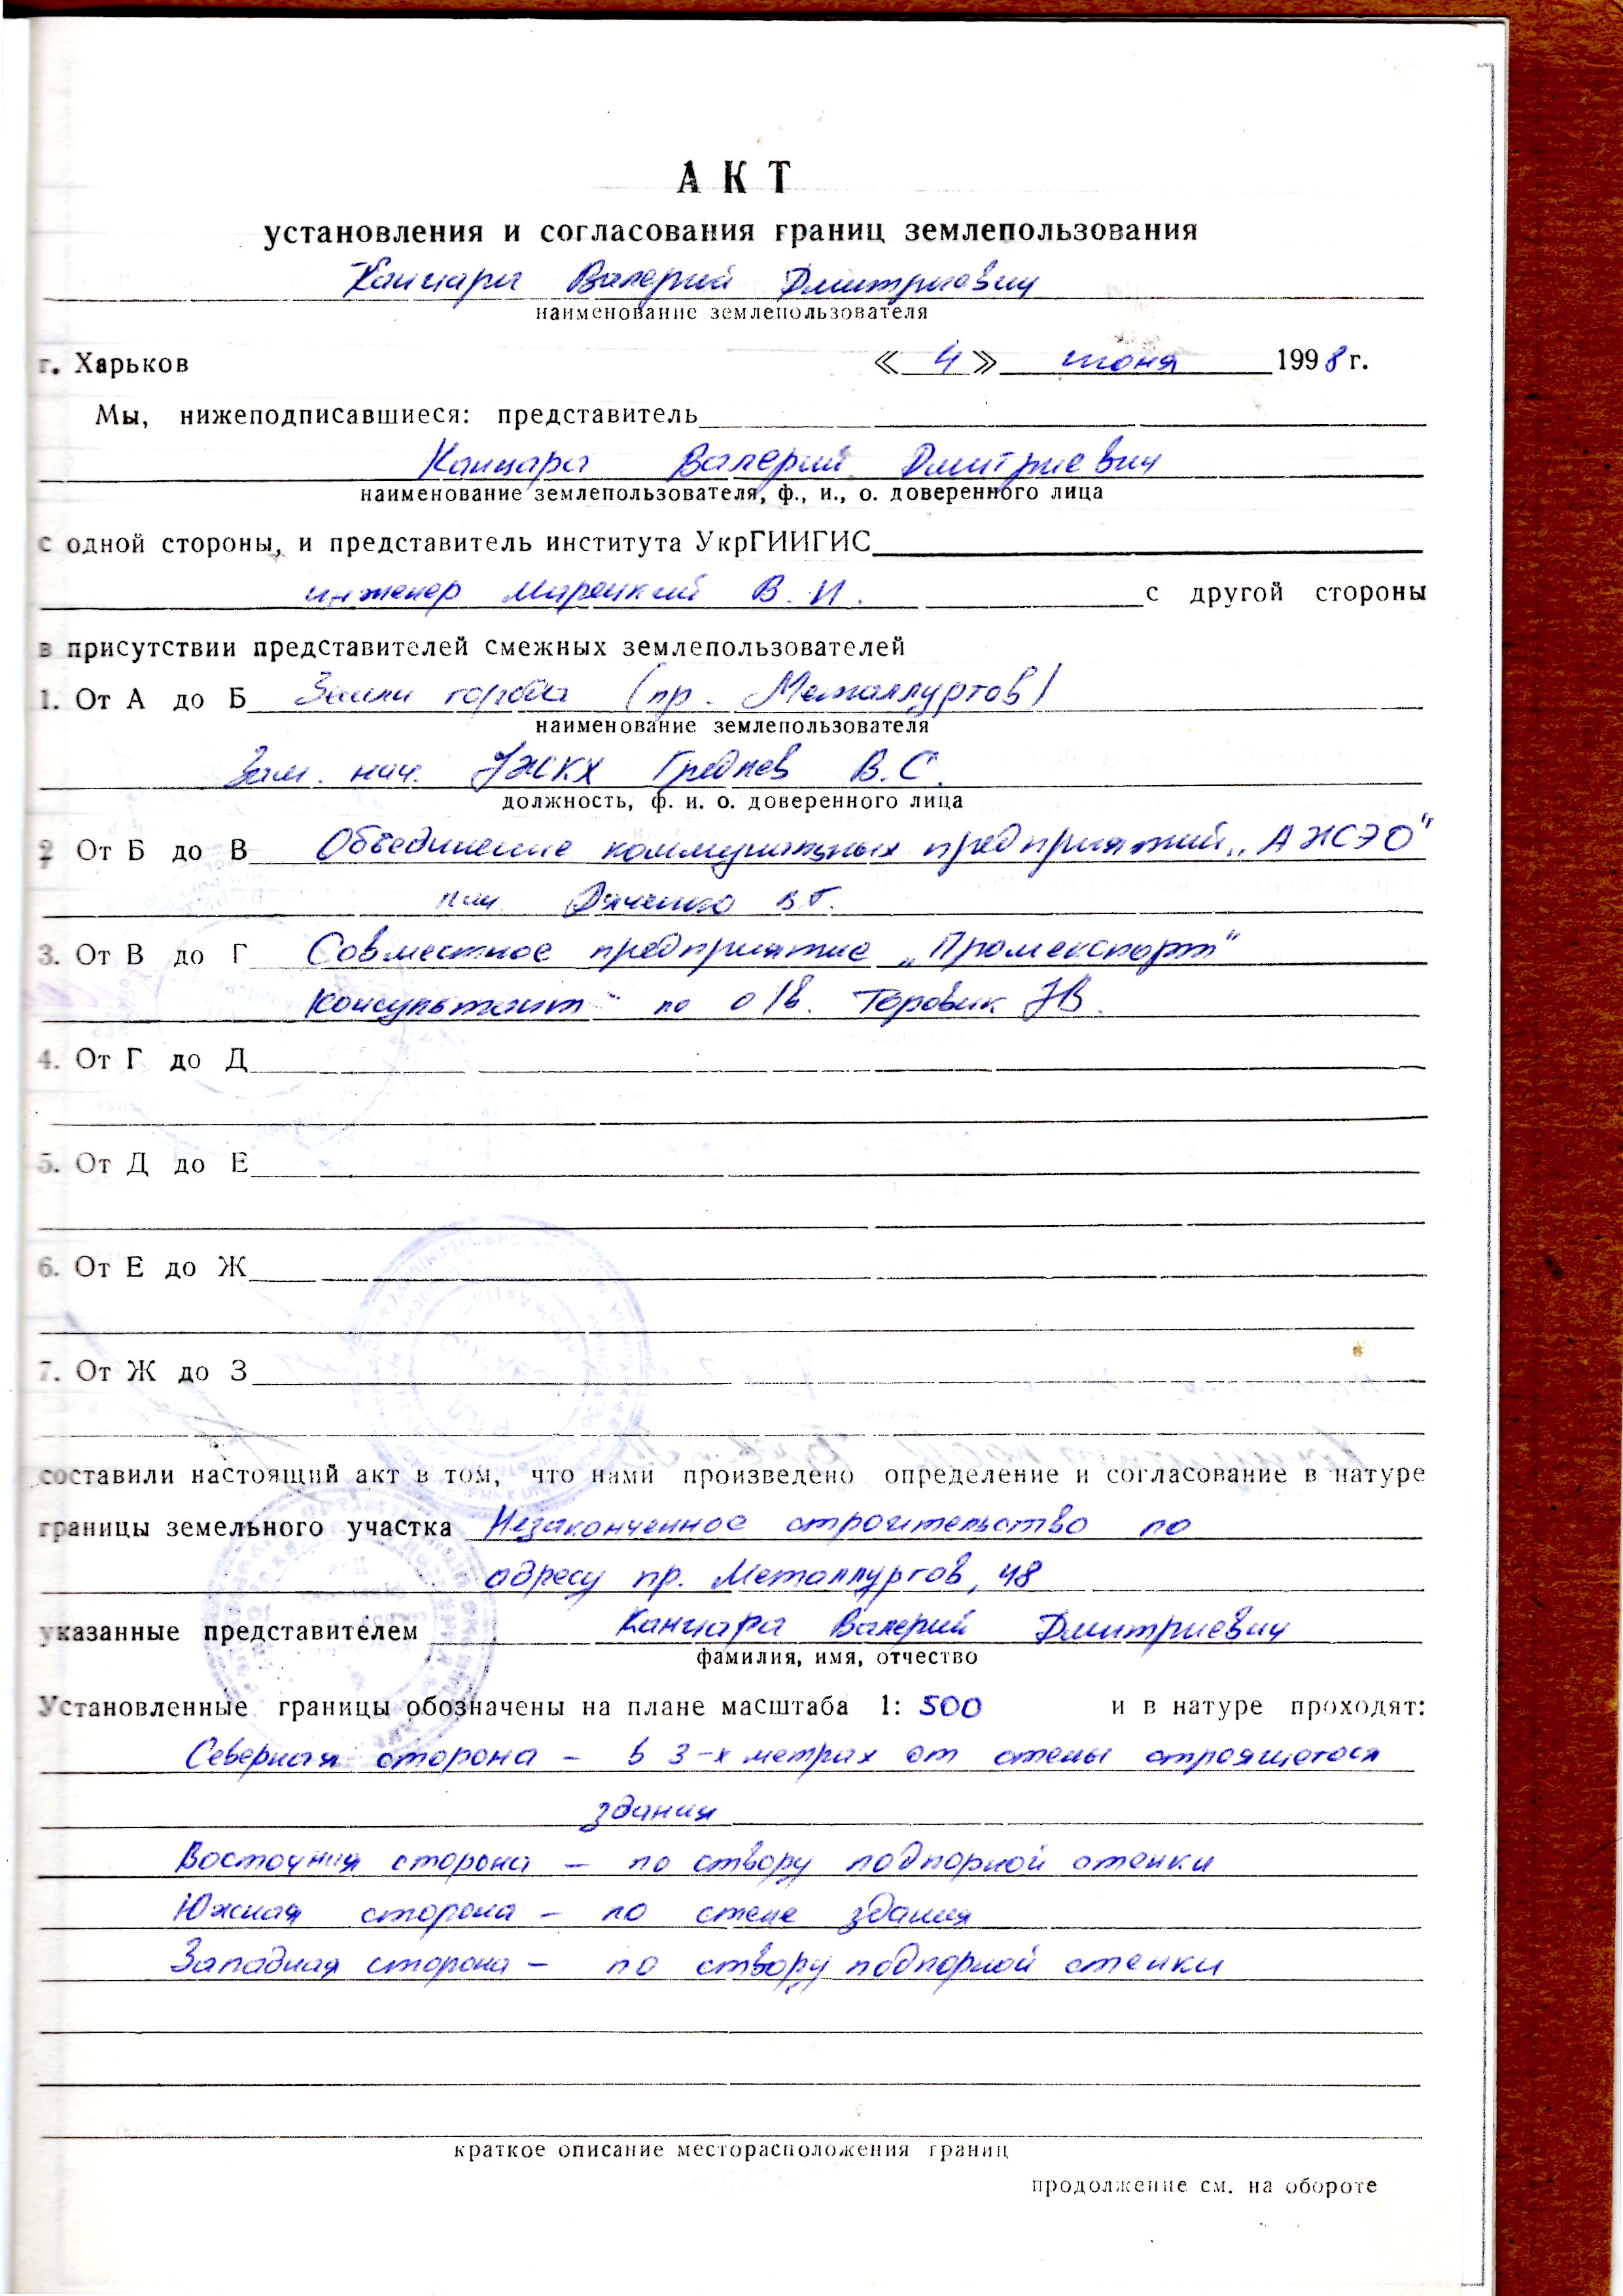 АКТ
установления и согласования границ землепользования
Канцара Валерий Дмитриевич
наименование землепользователя
г. Харьков « 4 » июня 1998 г.
Мы, нижеподписавшиеся: представитель
Канцара Валерий Дмитриевич
наименование землепользователя, ф., и., о. доверенного лица
с одной стороны, и представитель института УкрГИИГИС
инженер В. И. с другой стороны
в присутствии представителей смежных землепользователей
1. От А до Б Земли города (пр. Металлургов)
наименование землепользователя
Зам. нач. УЖКХ В. С.
должность, ф. и. о. доверенного лица
2 От Б до В Объединение коммунальных предприятий „АЖСЭО"
3. От В до Г Совместное предприятие „Промекспорт"
Консультант по
4. От Г до Д
5. От Д до Е
6. От Е до Ж
7. От Ж до З
составили настоящий акт в том, что нами произведено определение и согласование в натуре
границы земельного участка Незаконченное строительство по
адресу пр. Металлургов, 48
указанные представителем Канцара Валерий Дмитриевич
фамилия, имя, отчество
Установленные границы обозначены на плане масштаба 1: 500 и в натуре проходят:
Северная сторона – в 3-х метрах от стены строящегося
здания
Восточная сторона – по створу подпорной стенки
Южная сторона – по стене здания
Западная сторона – по створу подпорной стенки
краткое описание месторасположения границ
продолжение см. на обороте